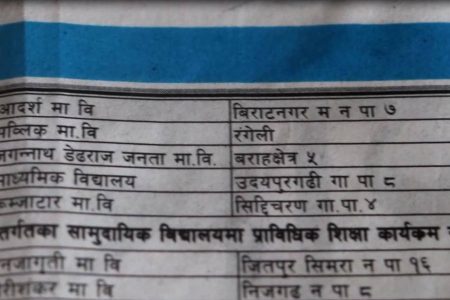 आदर्श मा वि बिराटनगर म न पा ७
पब्लिक मा.वि रंगेली
जगन्नाथ डेढराज जनता मा.वि. बराहक्षेत्र ५
माध्यमिक विद्यालय उदयपुरगढी गा पा ८
मा.वि सिद्दिचरण गा.पा.४
सामुदायिक विद्यालयमा प्राविधिक शिक्षा कार्यकम
जितपुर सिमरा न पा १६
मा वि निजगढ न पा ८